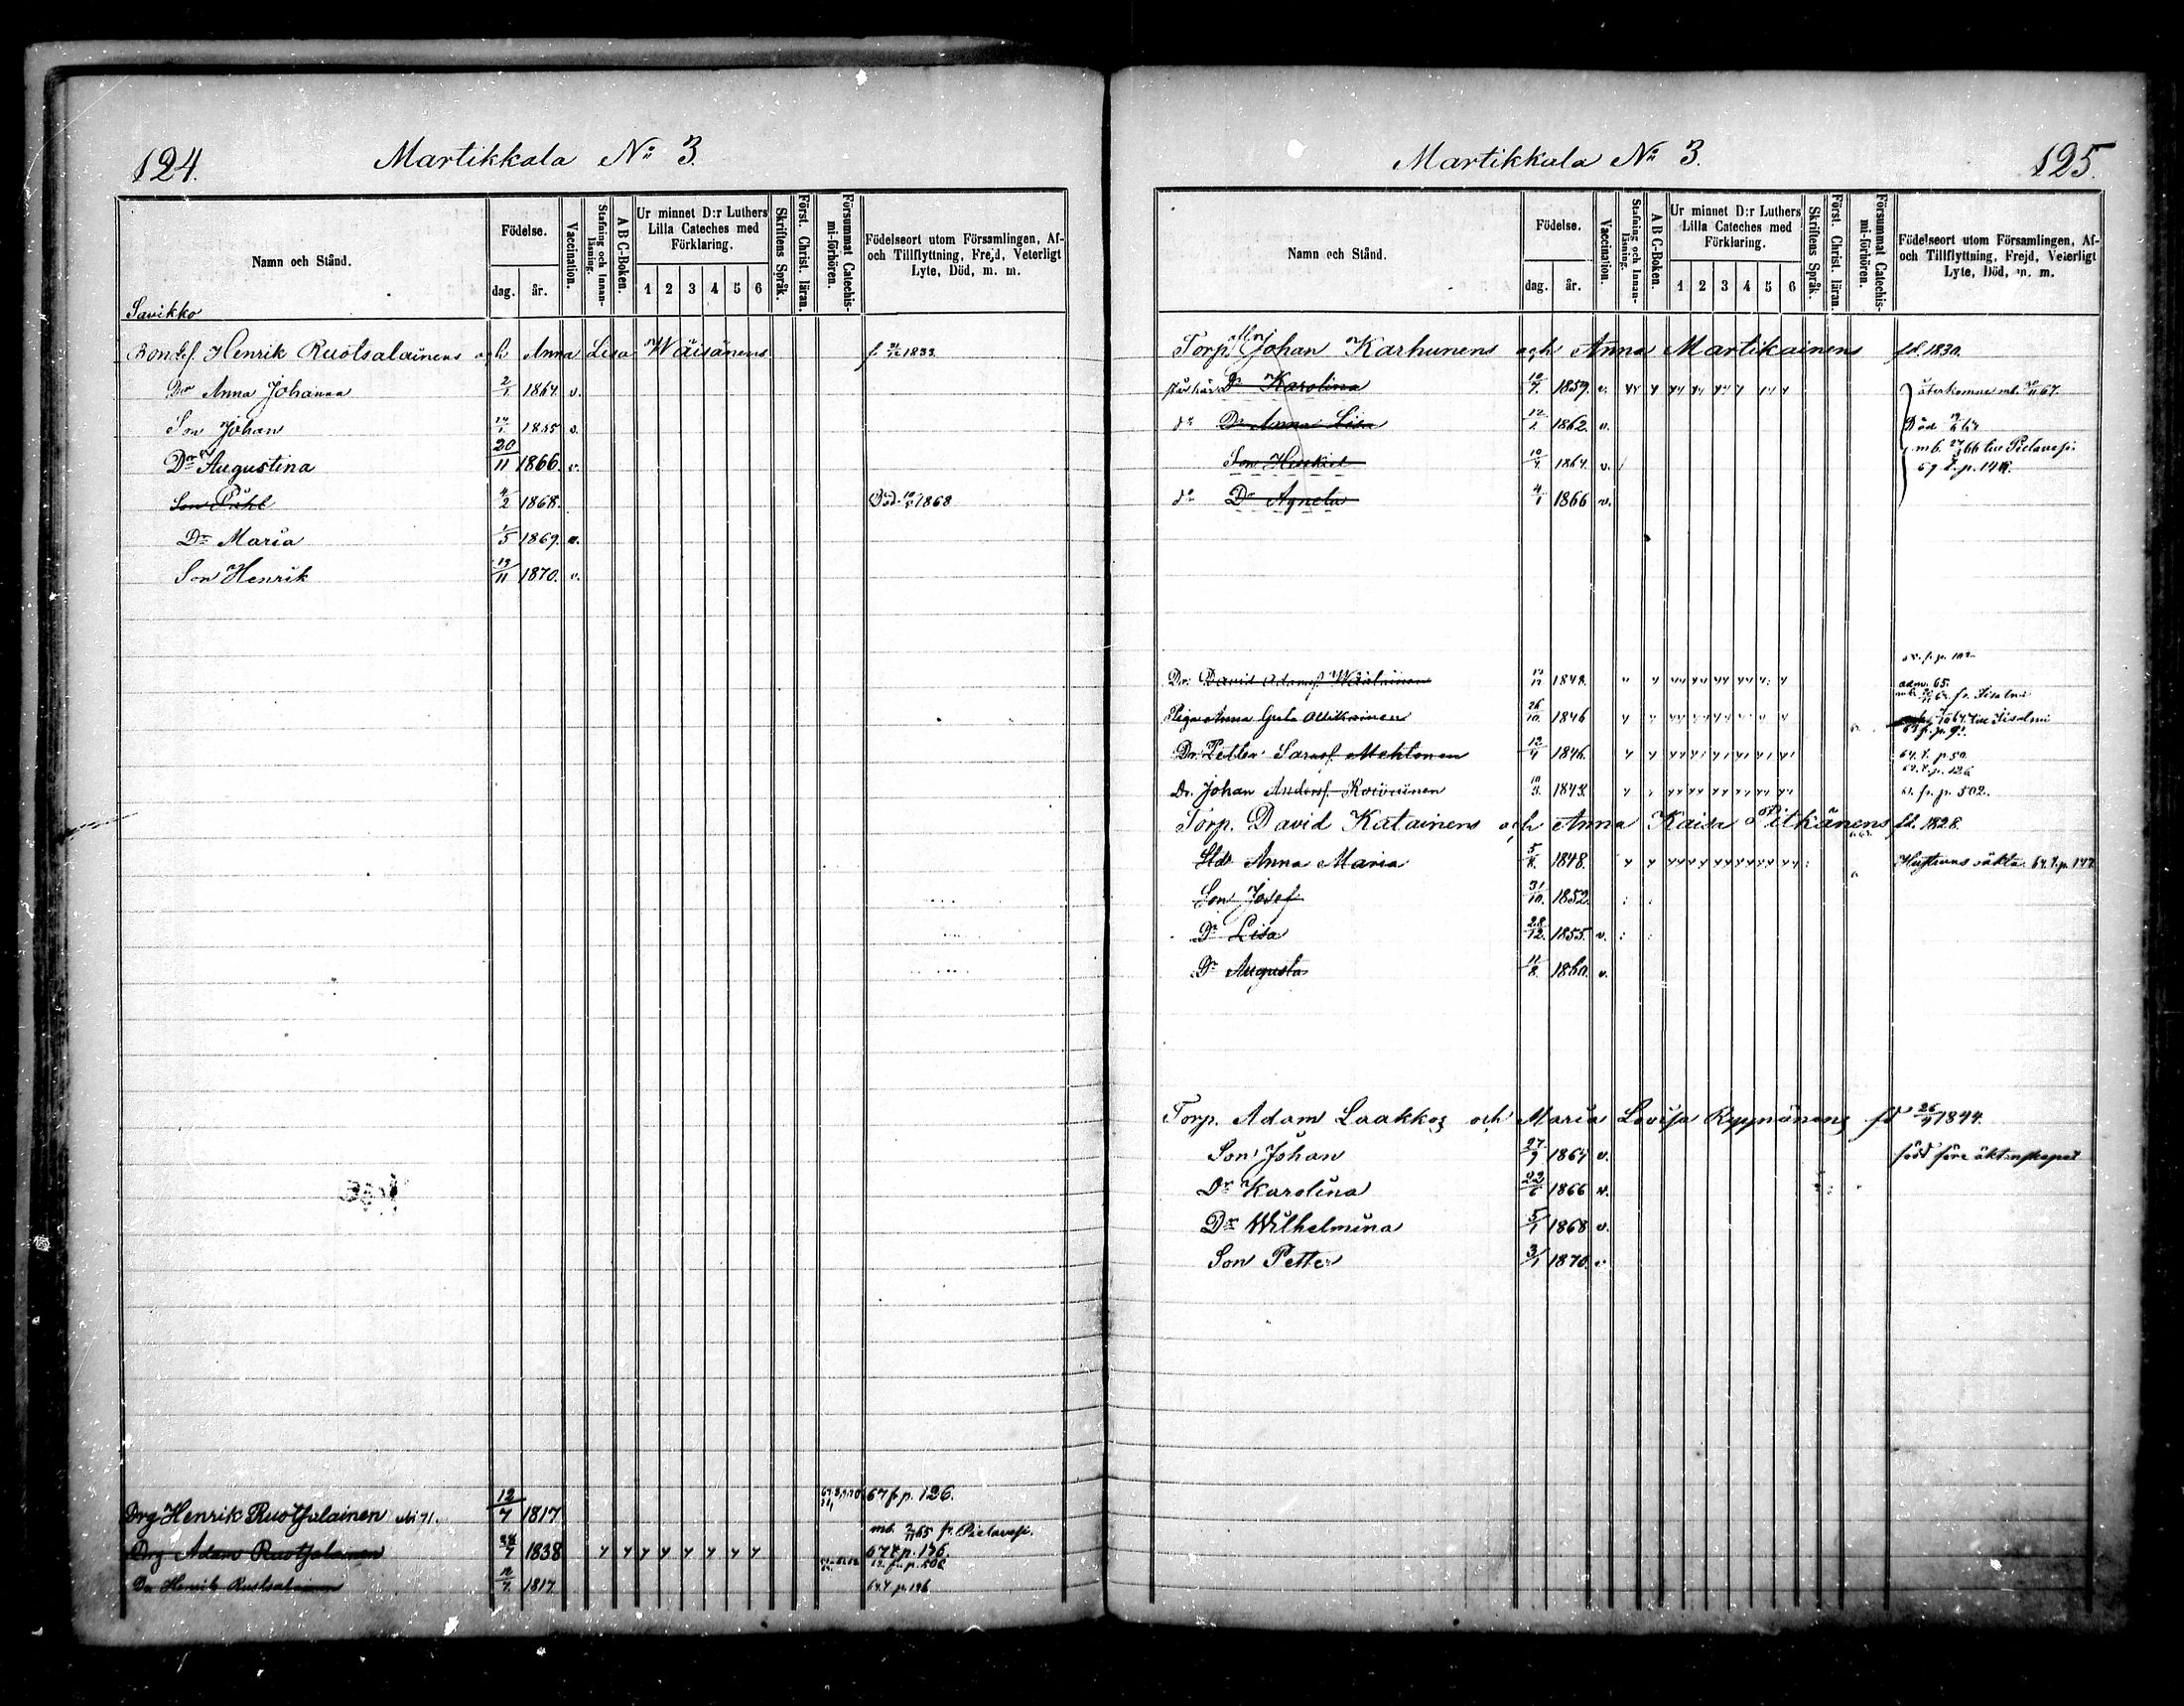 124.
Martikkala No 3.
Namn och Stånd.
Födelse.
dag. år.
Vaccination.
Stafning och Innan-läsning.
A B C-Boken.
Ur minnet D:r Luthers Lilla Cateches med Förklaring.
1 2 3 4 5 6
Skriftens Språk.
Först. Christ. läran.
Försummat Catechis-mi-förhören.
Födelseort utom Församlingen, Af-
och Tillflyttning, Frejd, Veterligt
Lyte, Död, m. m.
Savikko
Bondes. Henrik Ruotsalainens och Anna Lisa Wäisänens f. 1833.
Dr Anna Johanna 2/1 1864. v.
Son Johan 1865 v.
Dr Augustina 20/11 1866 v.
Son Påhl 4/2 1868. Död 1868
Dr Maria 1/5 1869. v.
Son Henrik 19/11 1870. v.
67 f. p. 126.
Drg Henrik Ruotsalainen 12/7 1817
mb. 65 fr. Pielavesi.
Drg Adam Ruotsalainen 28/7 1838 67 t. p. 136.
Dr Henrik Ruotsalainen 12/7 1817
Martikkala No 3.
125.
Namn och Stånd.
Födelse.
dag. år.
Vaccination.
Stafning och Innan-läsning.
A B C-Boken.
Ur minnet D:r Luthers Lilla Cateches med Förklaring.
1 2 3 4 5 6
Skriftens Språk.
Först. Christ. läran.
Försummat Catechis-mi-förhören.
Födelseort utom Församlingen, Af-
och Tillflyttning, Frejd, Veterligt
Lyte, Död, m. m.
Torp. Johan Karhunens och Anna Martikainens fd. 1830.
Dr Karolina 1859. v. återkomne mb. 67.
do Dr Anna Lisa 12/1 1862. v. Död
Son Heskiel 10/4 1864. v. mb. 66 till Pielavesi.
do Dr Agneta 4/1 1866 v.
Dr. David Adamsf. Wäänänen 1848. adm. 65.
fr. Iisalmi
Piga Anna Greta Ollikainen 26/10. 1846 till Iisalmi
Dr. Petter Sarasf. Mehtonen 12/4 1846. 64. t. p. 50.
64. t. p. 126
Dr. Johan Andersf. Roivainen 1843. fr. p. 502.
Torp. David Katainens och Anna Kaisa Pitkänens fd. 1828.
Anna Maria 5/8. 1848. Hustruns oäkta. 64. t. p. 147
Son Josef 31/10. 1852.
Dr Lisa 28/12. 1855. v.
Dr Augusta 11/8. 1860. v.
Torp. Adam Laakkos och Maria Lovisa Ryynänens fd 26/9 1844.
Son Johan 27/9 1864 v. född före äktenskapet
Dr Karolina 22/6 1866 v.
Dr Wilhelmina 5/1 1868 v.
Son Petter 3/1 1870. v.